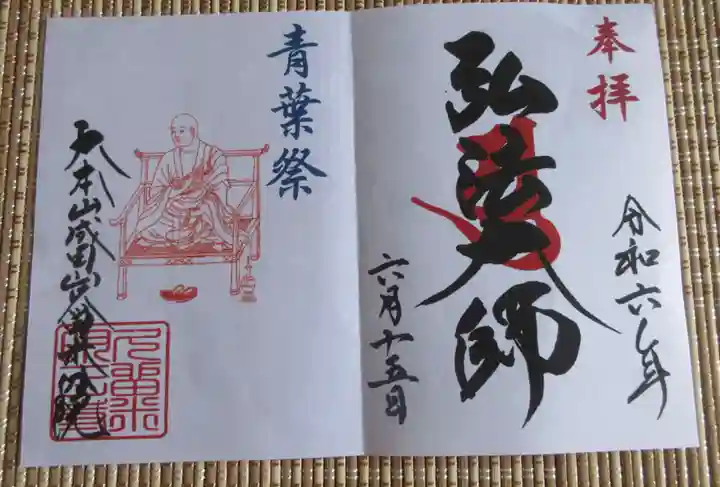 奉拝
令和六年
弘法大師
六月十五日
青葉祭
大本山成田山